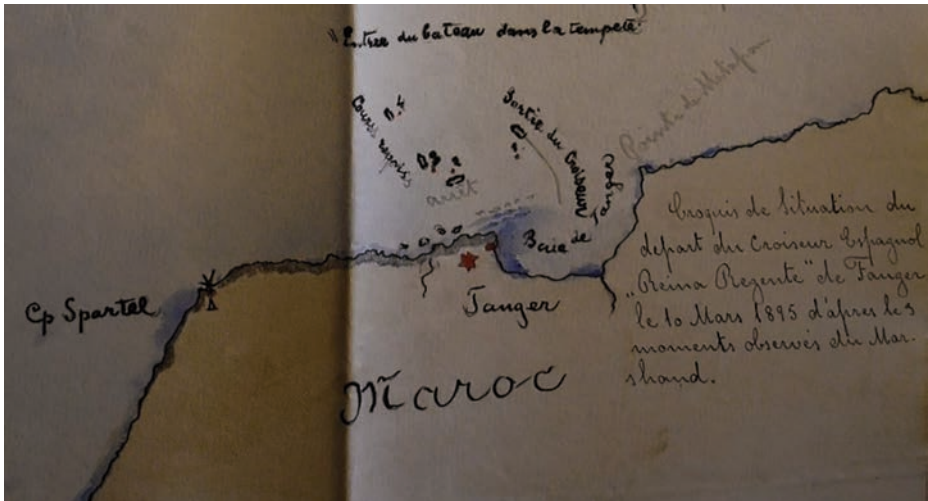 "Entree du bateau dans la tempete"
Cours
arrêt
Sortie du Croiseur
Tanger
Pointe de
Baie de
Cp Spartel
Tanger
Maroc
Croquis de Situation du
depart du Croiseur Espagnol
„Reina Regente" de Tanger
le 10 Mars 1895 d'apres les
moments observés du Mar-
shand.